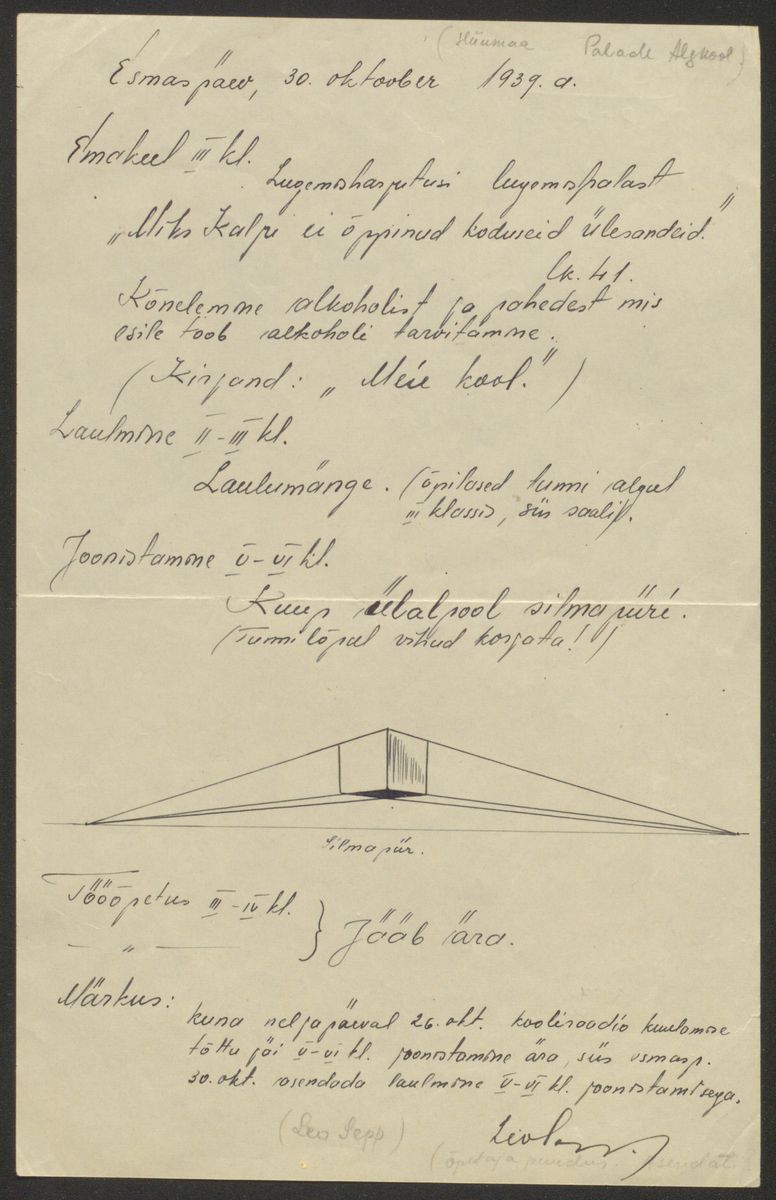 (Hiiumaa Palade Algkool)
Esmaspäev, 30. oktoober 1939. a.
Emakeel III kl.
Lugemisharjutusi lugemispalast
„Miks Kalju ei õppinud koduseid ülesandeid."
lk. 41.
Kõnelemine alkoholist ja pahedest mis
esile toob alkoholi tarvitamine.
(Kirjand: „Meie kool.")
Laulmine II-III kl.
Laulumänge. (õpilased tunni algul
III klassis, siis saalis).
Joonistamine V-VI kl.
Kuup ülalpool silmapiiri.
(Tunni lõpul vihud korjata!)
Silmapiir.
Tööõpetus III-IV kl.
— „ — } Jääb ära.
Märkus:
kuna neljapäeval 26. okt. kooliraadio kuulamise
tõttu jäi V-VI kl. joonistamine ära, siis esmasp.
30. okt. asendada laulmine V-VI kl. joonistamisega.
(Leo Sepp)
(õpetaja puudus.